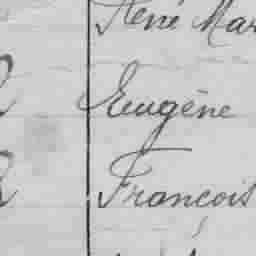 René Mar
Eugène
François